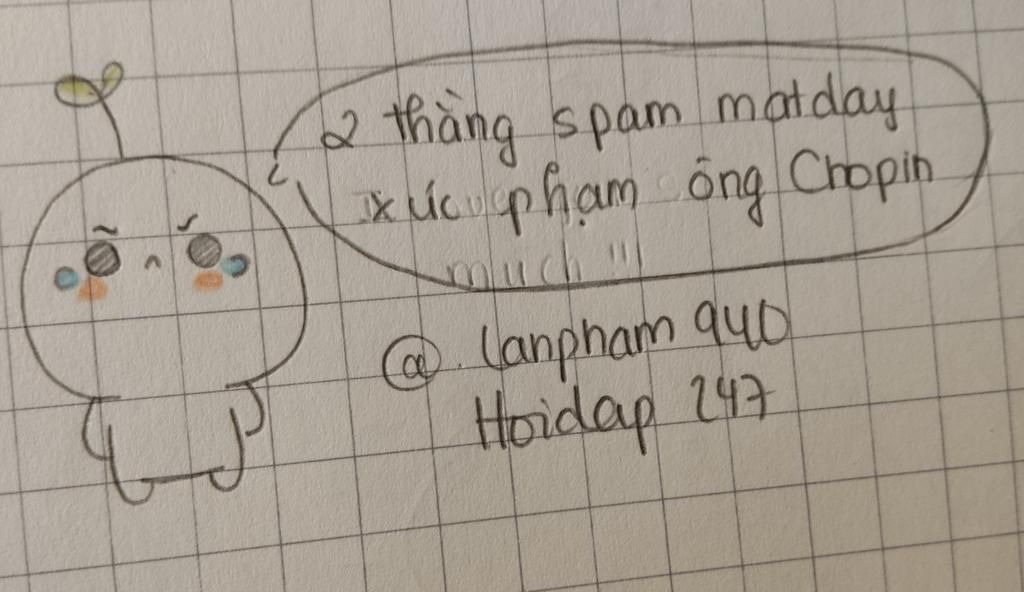 2 thằng spam matday
xúc phạm ông Chopin
much !!!
@ lanpham 940
Hoidap 247